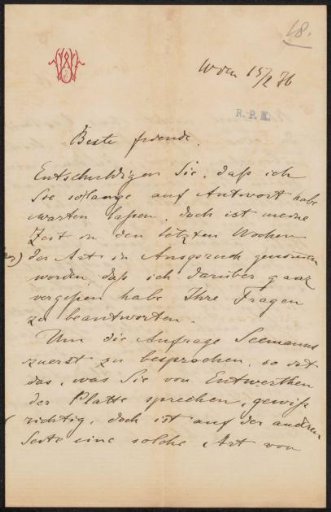 18.
W den 15/2 76
R.P.K.
Beste freunde.
Entschuldigen Sie, daß ich
Sie solange auf Antwort habe
warten lassen, doch ist meine
Zeit in den letzten Wochen
der Art in Anspruch genommen
worden, daß ich darüber ganz
vergeßen habe Ihre Fragen
zu beantworten.
Um die Anfrage Seemanns
zuerst zu besprechen, so ist
das, was Sie von Entwerthen
der Platte sprechen, gewiß
richtig, doch ist auf der andren
Seite eine solche Art von